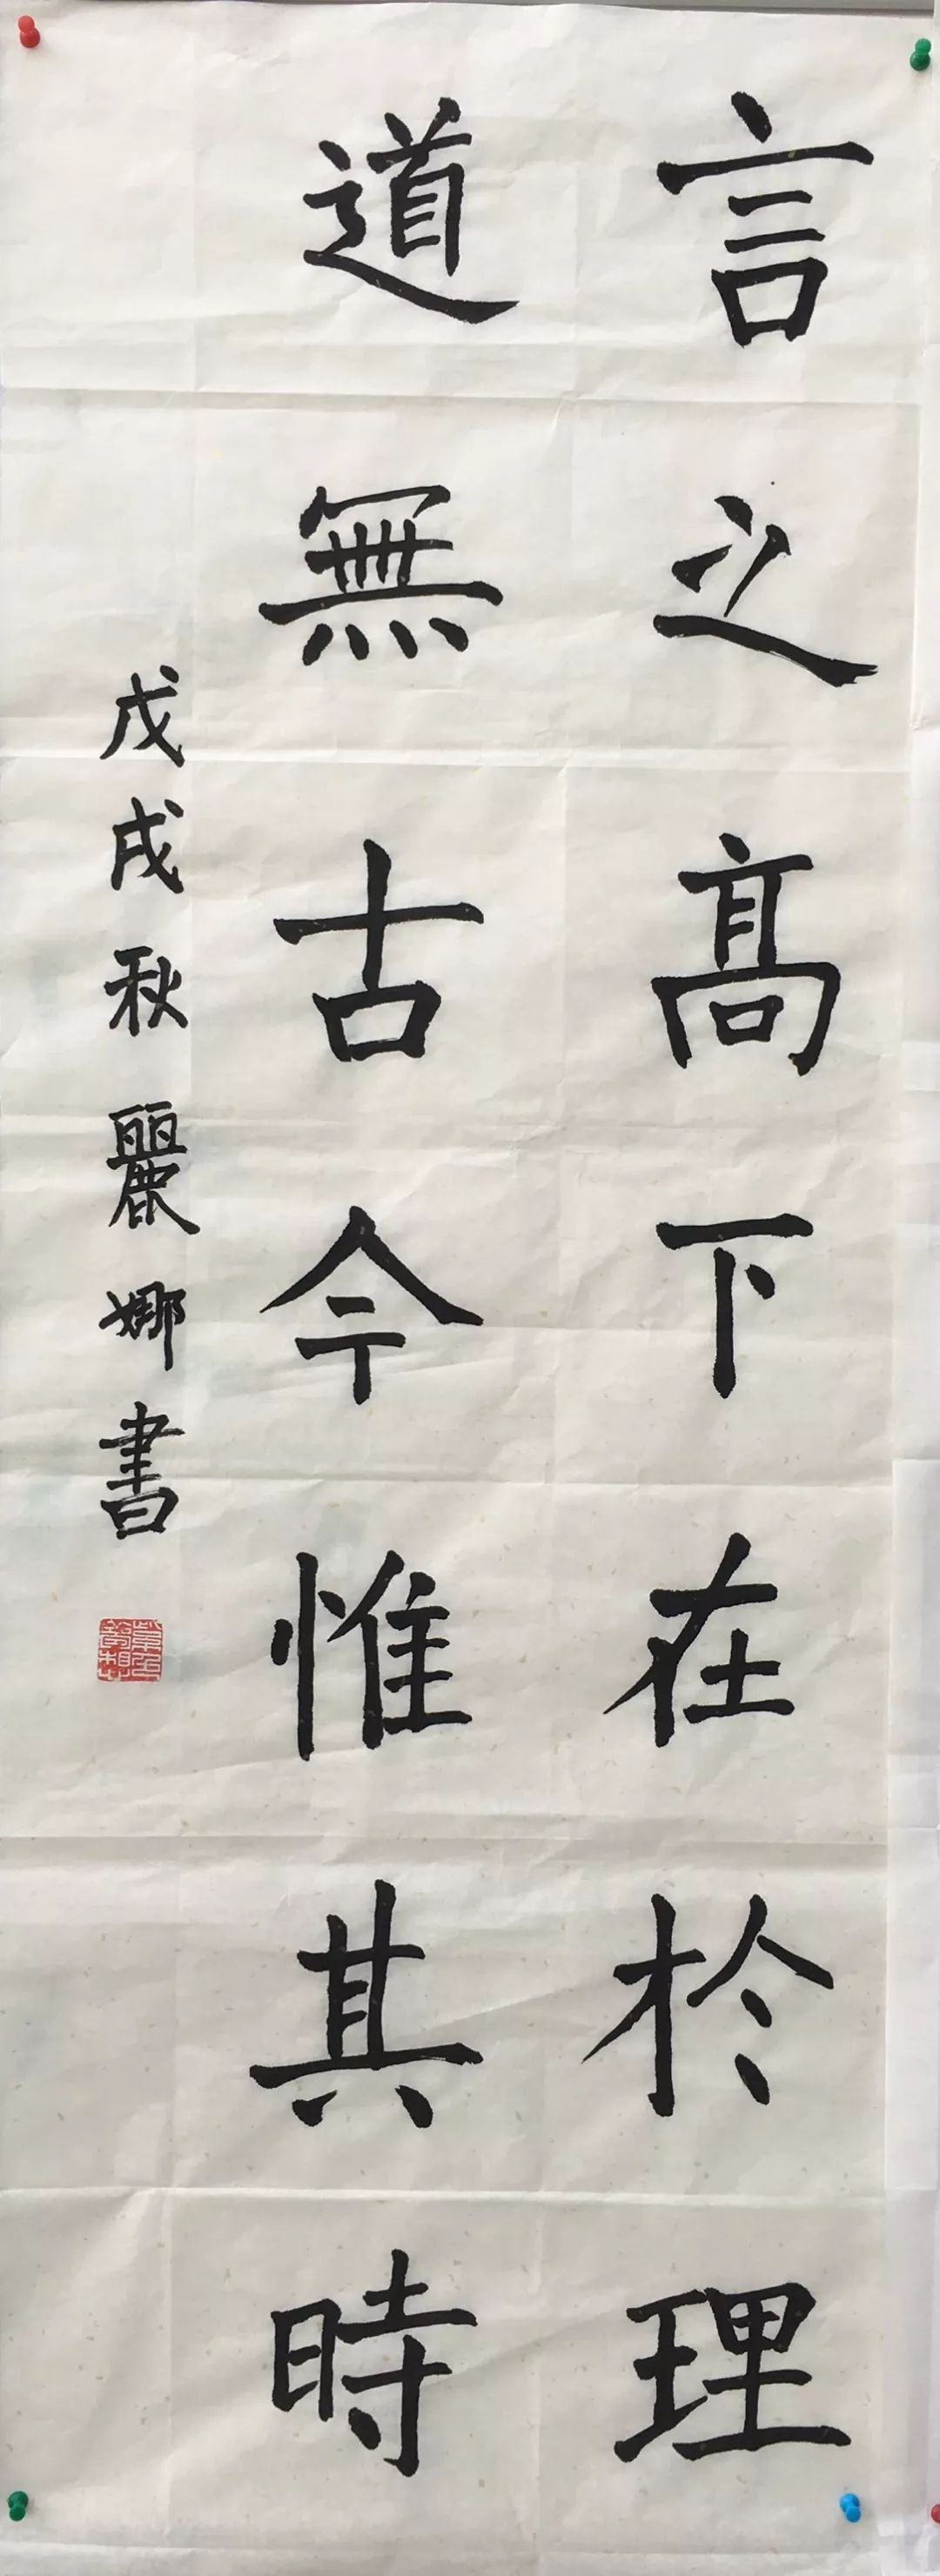 言之高下在於理
道無古今惟其時
戊戌秋麗娜書